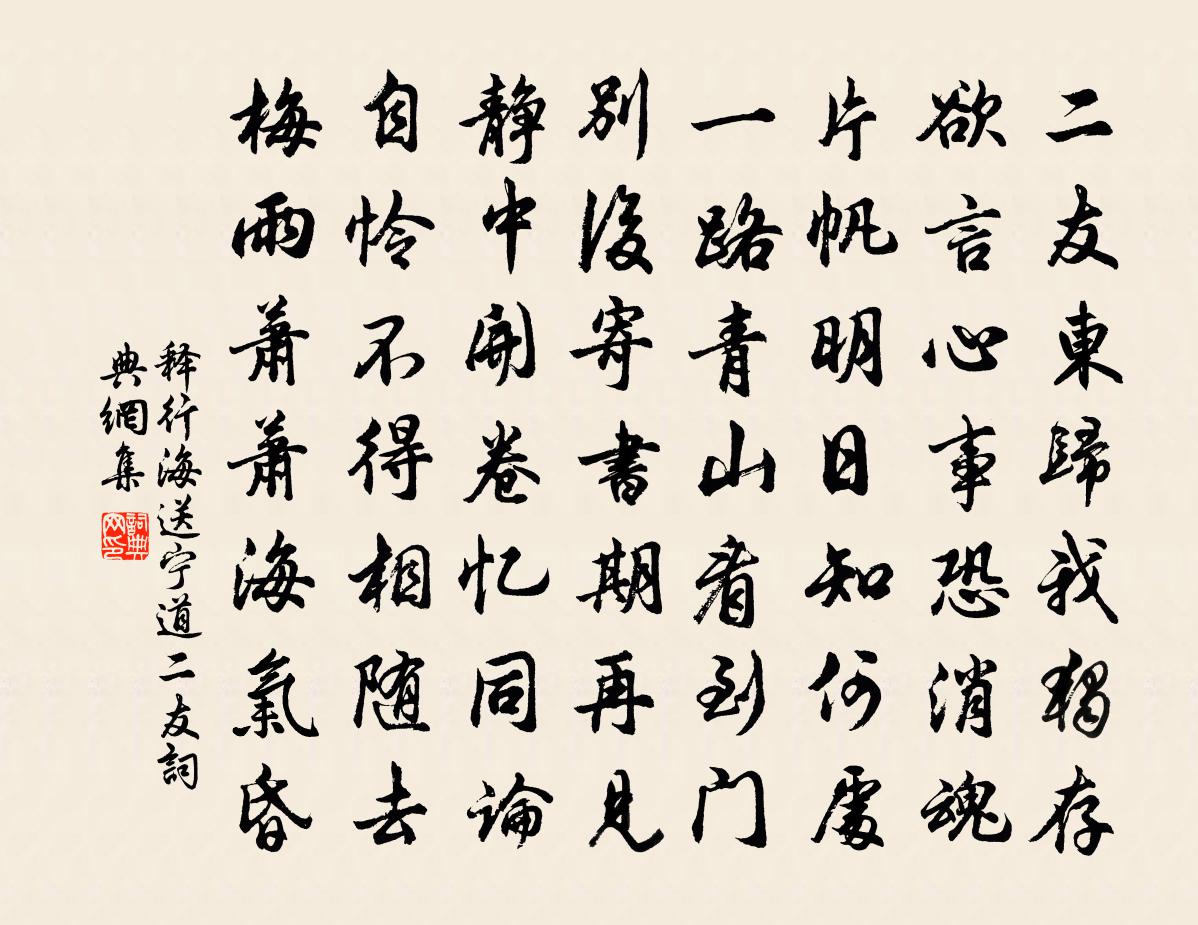 二友東歸我獨存
欲言心事恐消魂
片帆明日知何處
一路青山看到门
別後寄書期再見
靜中開卷忆同論
自怜不得相随去
梅雨蕭蕭海氣昏
释行海送宁道二友詞
典網集
詞典网印